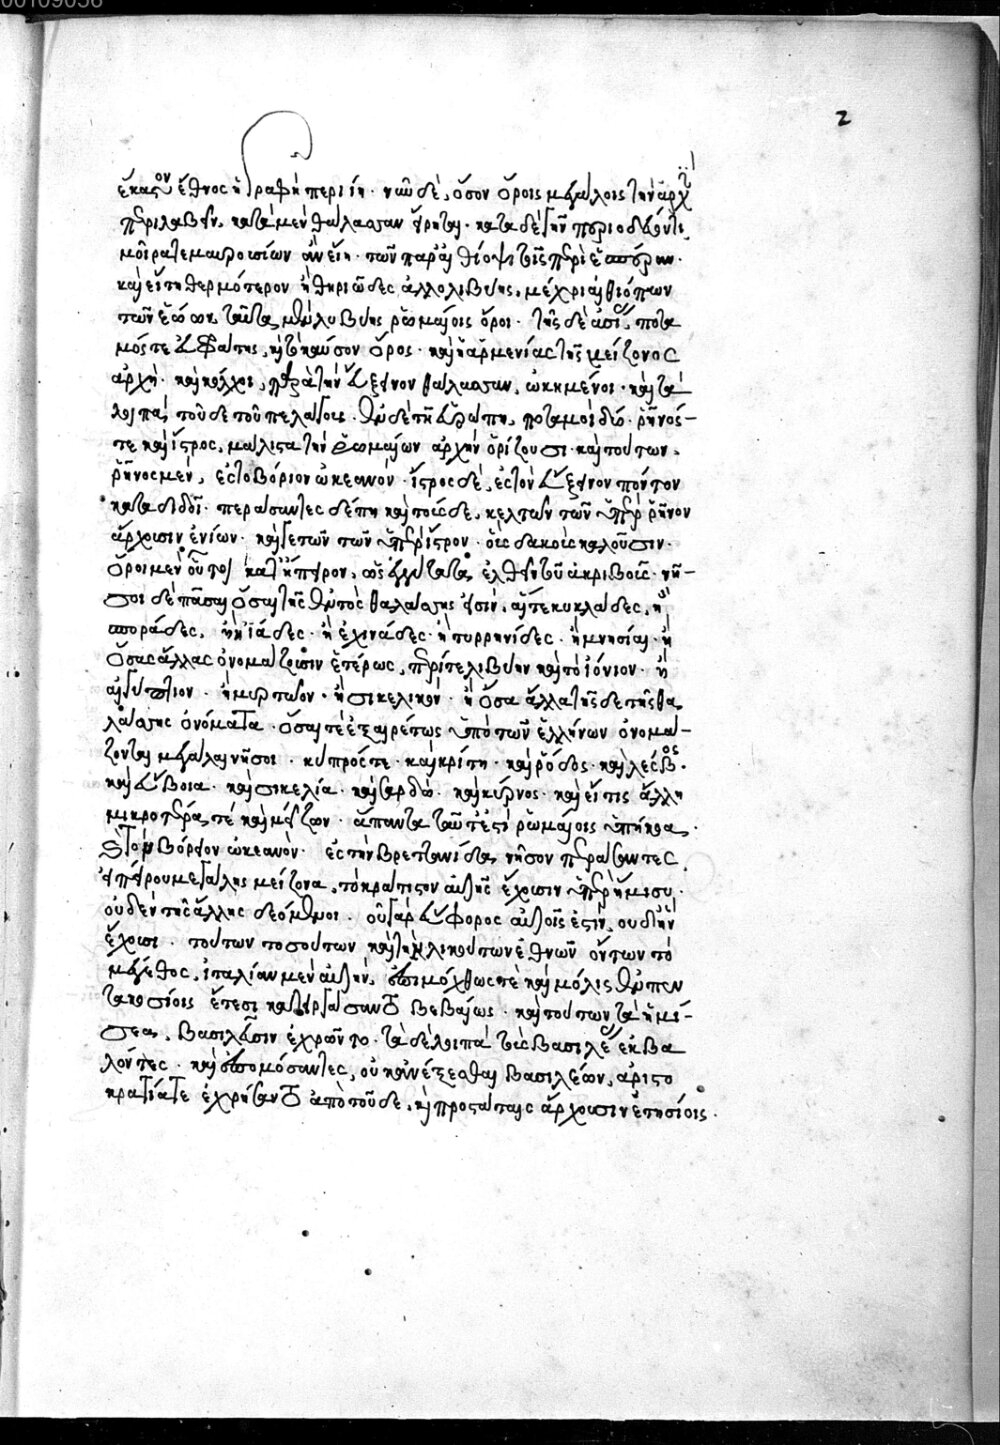 00109056
2
ἕκαστον ἔθνος ἡ γραφὴ περιίῃ. νῦν δὲ, ὅσον ὅροις μεγάλοις τὴν ἀρχὴν
περιλαβεῖν, κατὰ μὲν θάλασσαν εἴρηται. κατὰ δὲ γῆν περιοδεύοντι,
μοῖρά τε μαυρουσίων ἂν εἴη. τῶν παρ' αἰθίοψι τοῖς πρὸς ἑσπέραν.
καὶ εἴ τι θερμότερον ἢ θηριῶδες ἄλλο λιβύης, μέχρι αἰθιόπων
τῶν ἑῴων. ταῦτα μὲν λιβύης ῥωμαίοις ὅροι. τῆς δὲ ἀσίας, ποτα
μός τε εὐφράτης, καὶ τὸ καύκασον ὄρος. καὶ ἡ ἀρμενίας τῆς μείζονος
ἀρχή. καὶ κόλχοι, παρὰ τὴν εὔξεινον θάλασσαν, ᾠκημένοι. καὶ τὰ
λοιπὰ, τοῦδε τοῦ πελάγους. ἐν δὲ τῇ εὐρώπῃ, ποταμοὶ δύο. ῥῆνός
τε καὶ ἴστρος, μάλιστα τὴν ῥωμαίων ἀρχὴν ὁρίζουσι. καὶ τούτων,
ῥῆνος μὲν, ἐς τὸ βόρειον ὠκεανόν. ἴστρος δὲ, ἐς τὸν εὔξεινον πόντον
καταδιδοῖ. περάσαντες δέ πῃ καὶ τούσδε, κελτῶν τῶν ὑπὲρ ῥῆνον
ἄρχουσιν ἐνίων. καὶ γετῶν τῶν ὑπὲρ ἴστρον. οὓς δάκους καλοῦσιν.
ὅροι μὲν οὗτοι κατ' ἤπειρον, ὡς ἐγγύτατα ἐλθεῖν τοῦ ἀκριβοῦς. νῆ
σοι δὲ πᾶσαι ὅσαι τῆς ἐντὸς θαλάσσης εἰσίν. αἵ τε κυκλάδες, ἢ
σποράδες, ἢ ἰάδες. ἢ ἐχινάδες. ἢ τυρρηνίδες. ἢ μνησίαι. ἢ
ὅσας ἄλλας ὀνομάζουσιν ἑτέρως, περί τε λιβύην καὶ τὸ ἰόνιον. ἢ
αἰγύπτιον. ἢ μυρτῷον. ἢ σικελικόν. ἢ ὅσα ἄλλα τῆσδε τῆς θα
λάσσης ὀνόματα. ὅσαι τε ἐξαιρέτως ὑπὸ τῶν ἑλλήνων ὀνομά
ζονται μεγάλαι νῆσοι. κύπρός τε. καὶ κρίτη. καὶ ῥόδος. καὶ λέσβος.
καὶ εὔβοια. καὶ σικελία. καὶ σαρδώ. καὶ κύρνος. καὶ εἴ τις ἄλλη
μικροτέρα τέ καὶ μείζων. ἅπαντα ταῦτ' ἐστὶ ῥωμαίοις ὑπήκοα.
τὸν βόρειον ὠκεανὸν. ἐς τὴν βρεττανίδα νῆσον περάσαντες
ἠπείρου μεγάλης μείζονα, τὸ κράτιστον αὐτῆς ἔχουσιν ὑπὲρ ἥμισυ.
οὐδὲν τῆς ἄλλης δεόμενοι. οὐ γὰρ εὔφορος αὐτοῖς ἐστὶν, οὐδ' ἣν
ἔχουσι. τούτων τοσούτων καὶ τηλικούτων ἐθνῶν ὄντων τὸ
μέγεθος, ἰταλίαν μὲν αὐτὴν, ἐπιμόχθως τὲ καὶ μόλις ἐν πεν
τακοσίοις ἔτεσι κατειργάσαντο βεβαίως. καὶ τούτων τὰ ἡμί
σεα, βασιλεῦσιν ἐχρῶντο. τὰ δὲ λοιπὰ τοὺς βασιλέας ἐκβα
λόντες. καὶ ἐπομόσαντες, οὐκ ἀνέξεσθαι βασιλέων, ἀριστο
κρατίᾳ τε ἐχρήσαντο ἀπὸ τοῦδε, καὶ προστάταις ἄρχουσιν ἐτησίοις.